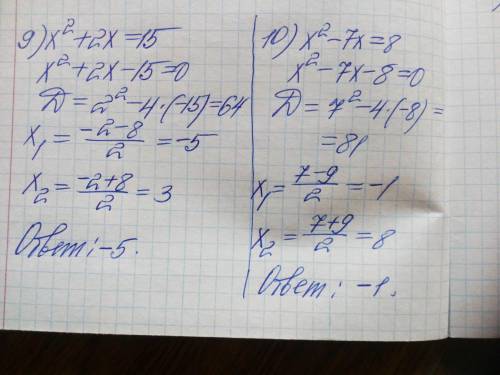 9) x² + 2x = 15
x² + 2x - 15 = 0
D = 2² - 4·(-15) = 64
x₁ = (-2-8)/2 = -5
x₂ = (-2+8)/2 = 3
Ответ: -5.
10) x² - 7x = 8
x² - 7x - 8 = 0
D = 7² - 4·(-8) =
= 81
x₁ = (7-9)/2 = -1
x₂ = (7+9)/2 = 8
Ответ: -1.